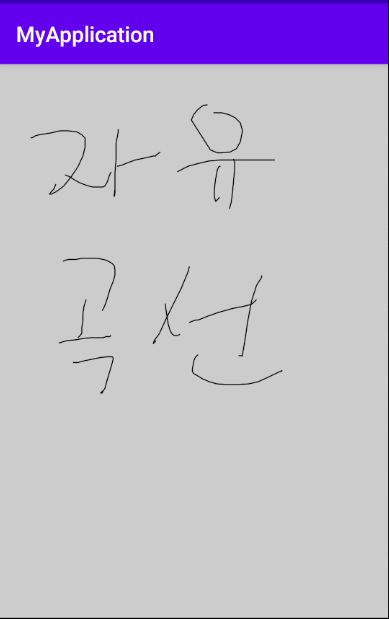 MyApplication
자유
곡선